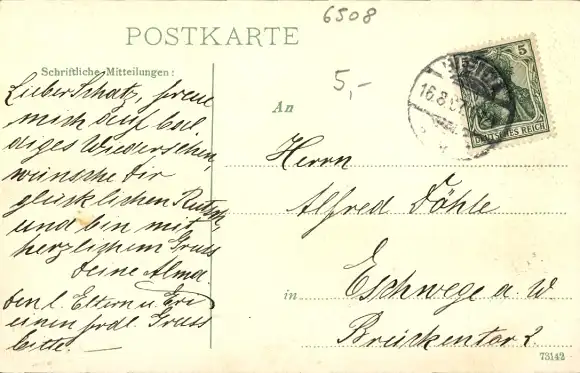 6508
POSTKARTE
5
16.8.07
DEUTSCHES REICH
Schriftliche Mitteilungen:
Lieber Schatz, freue
mich auf bal
diges Wiedersehen,
wünsche dir
glücklichen Rutsch
und bin mit
herzlichem Gruss
deine Alma
den l. Eltern u.
einen frdl. Gruss
bitte. —
5,-
An
Herrn
Alfred Döhle
in Eschwege a. W.
Brückentor 2.
73142